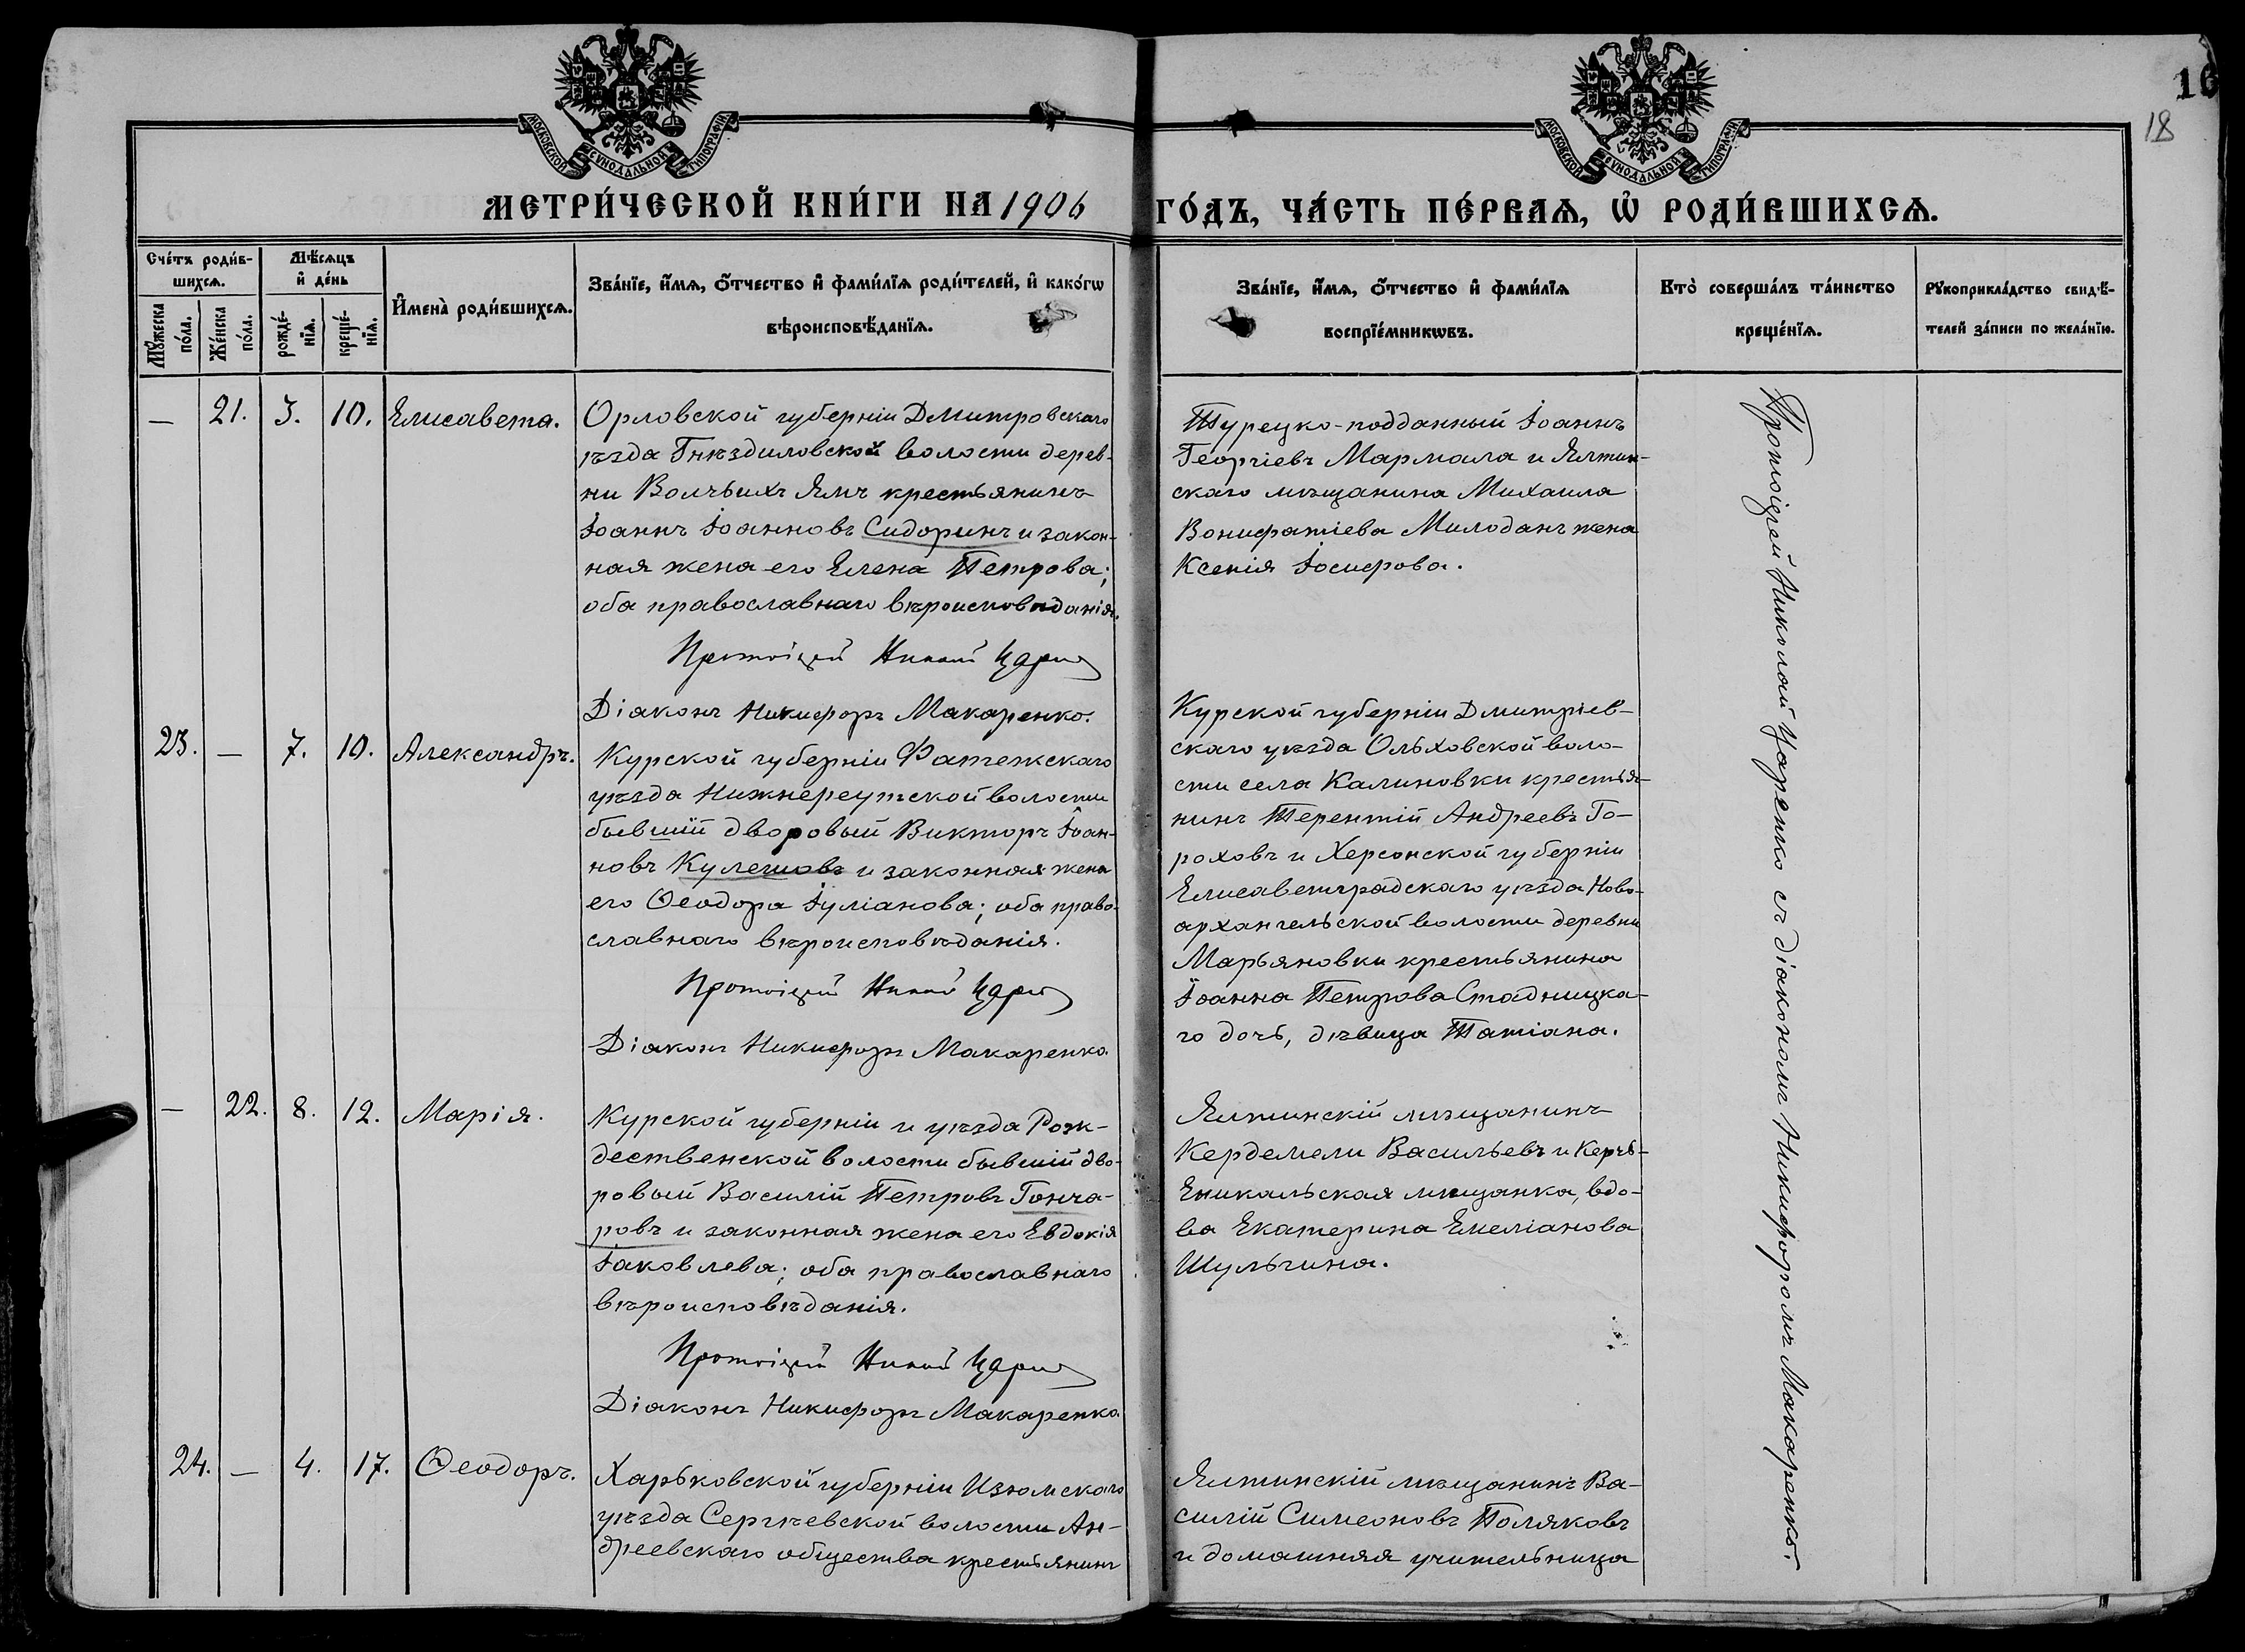 МОСКОВСКОЙ СѴНОДАЛЬНОЙ ТИПОГРАФІИ
МОСКОВСКОЙ СѴНОДАЛЬНОЙ ТИПОГРАФІИ
16
18
МЕТРИ́ЧЕСКОЙ КНИ́ГИ НА 1906 ГО́ДЪ, ЧА́СТЬ ПЕ́РВАѦ, Ѡ҆ РОДИ́ВШИХСѦ.
Сче́тъ роди́в-
шихсѧ.
Мѹ́жеска по́ла.
Же́нска по́ла.
Мѣ́сѧцъ
и҆ де́нь
рожде́-
нїѧ.
креще́-
нїѧ.
И҆мена̀ роди́вшихсѧ.
Зва́нїе, и҆́мѧ, ѻ҆́тчество и҆ фами́лїѧ роди́телей, и҆ како́гѡ
вѣроисповѣ́данїѧ.
Зва́нїе, и҆́мѧ, ѻ҆́тчество и҆ фами́лїѧ
воспрїе́мникѡвъ.
Кто̀ соверша́лъ та́инство
креще́нїѧ.
Рѹкоприкла́дство свидѣ́-
телей за́писи по жела́нїю.
— 21. 3. 10. Елисавета.
Орловской губерніи Дмитровскаго
уѣзда Гнѣздиловской волости дерев-
ни Волчьихъ Ямъ крестьянинъ
Іоаннъ Іоанновъ Сидоринъ и закон-
ная жена его Елена Петрова;
оба православнаго вѣроисповѣданія.
Протоіерей Николай Царенко
Діаконъ Никифоръ Макаренко.
Турецко-подданный Іоаннъ
Георгіевъ Мармала и Ялтин-
скаго мѣщанина Михаила
Вонифатіева Милоданъ жена
Ксенія Іосифова.
23. — 7. 10. Александръ.
Курской губерніи Фатежскаго
уѣзда Нижнереутской волости
бывшій дворовый Викторъ Іоан-
новъ Кулешовъ и законная жена
его Ѳеодора Іуліанова; оба право-
славнаго вѣроисповѣданія.
Протоіерей Николай Царенко
Діаконъ Никифоръ Макаренко
Курской губерніи Дмитріев-
скаго уѣзда Ольховской воло-
сти села Калиновки крестья-
нинъ Терентій Андреевъ Го-
роховъ и Херсонской губерніи
Елисаветградскаго уѣзда Ново-
архангельской волости деревни
Марьяновки крестьянина
Іоанна Петрова Стадницка-
го дочь, дѣвица Татіана.
— 22. 8. 12. Марія.
Курской губерніи и уѣзда Рож-
дественской волости бывшій дво-
ровый Василій Петровъ Гонча-
ровъ и законная жена его Евдокія
Іаковлева; оба православнаго
вѣроисповѣданія.
Протоіерей Николай Царенко
Діаконъ Никифоръ Макаренко
Ялтинскій мѣщанинъ
Кердемели Васильевъ и Керчь-
Еникальская мѣщанка, вдо-
ва Екатерина Емеліанова
Шульгина.
24. — 4. 17. Ѳеодоръ.
Харьковской губерніи Изюмскаго
уѣзда Сергѣевской волости Ан-
дреевскаго общества крестьянинъ
Ялтинскій мѣщанинъ Ва-
силій Симеоновъ Поляковъ
и домашняя учительница
Протоіерей Николай Царенко съ діакономъ Никифоромъ Макаренко.